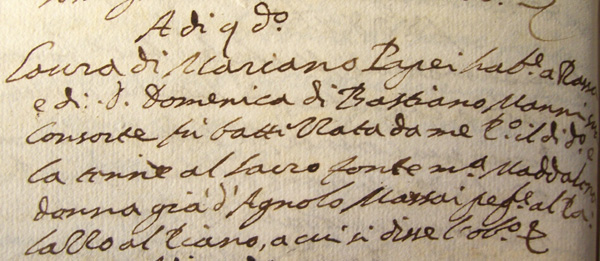 A di 9 do.
Laura di Mariano Papei habe. a Rasse
e di: D. Domenica di Bastiano Nanni sua
Consorte fù battizzata da me Co. il di do. e
la tenne al sacro fonte ma. Maddalena
donna già d'Agnolo Massai pege. al Pa
lazzo al Piano, a cui si disse l'obo.